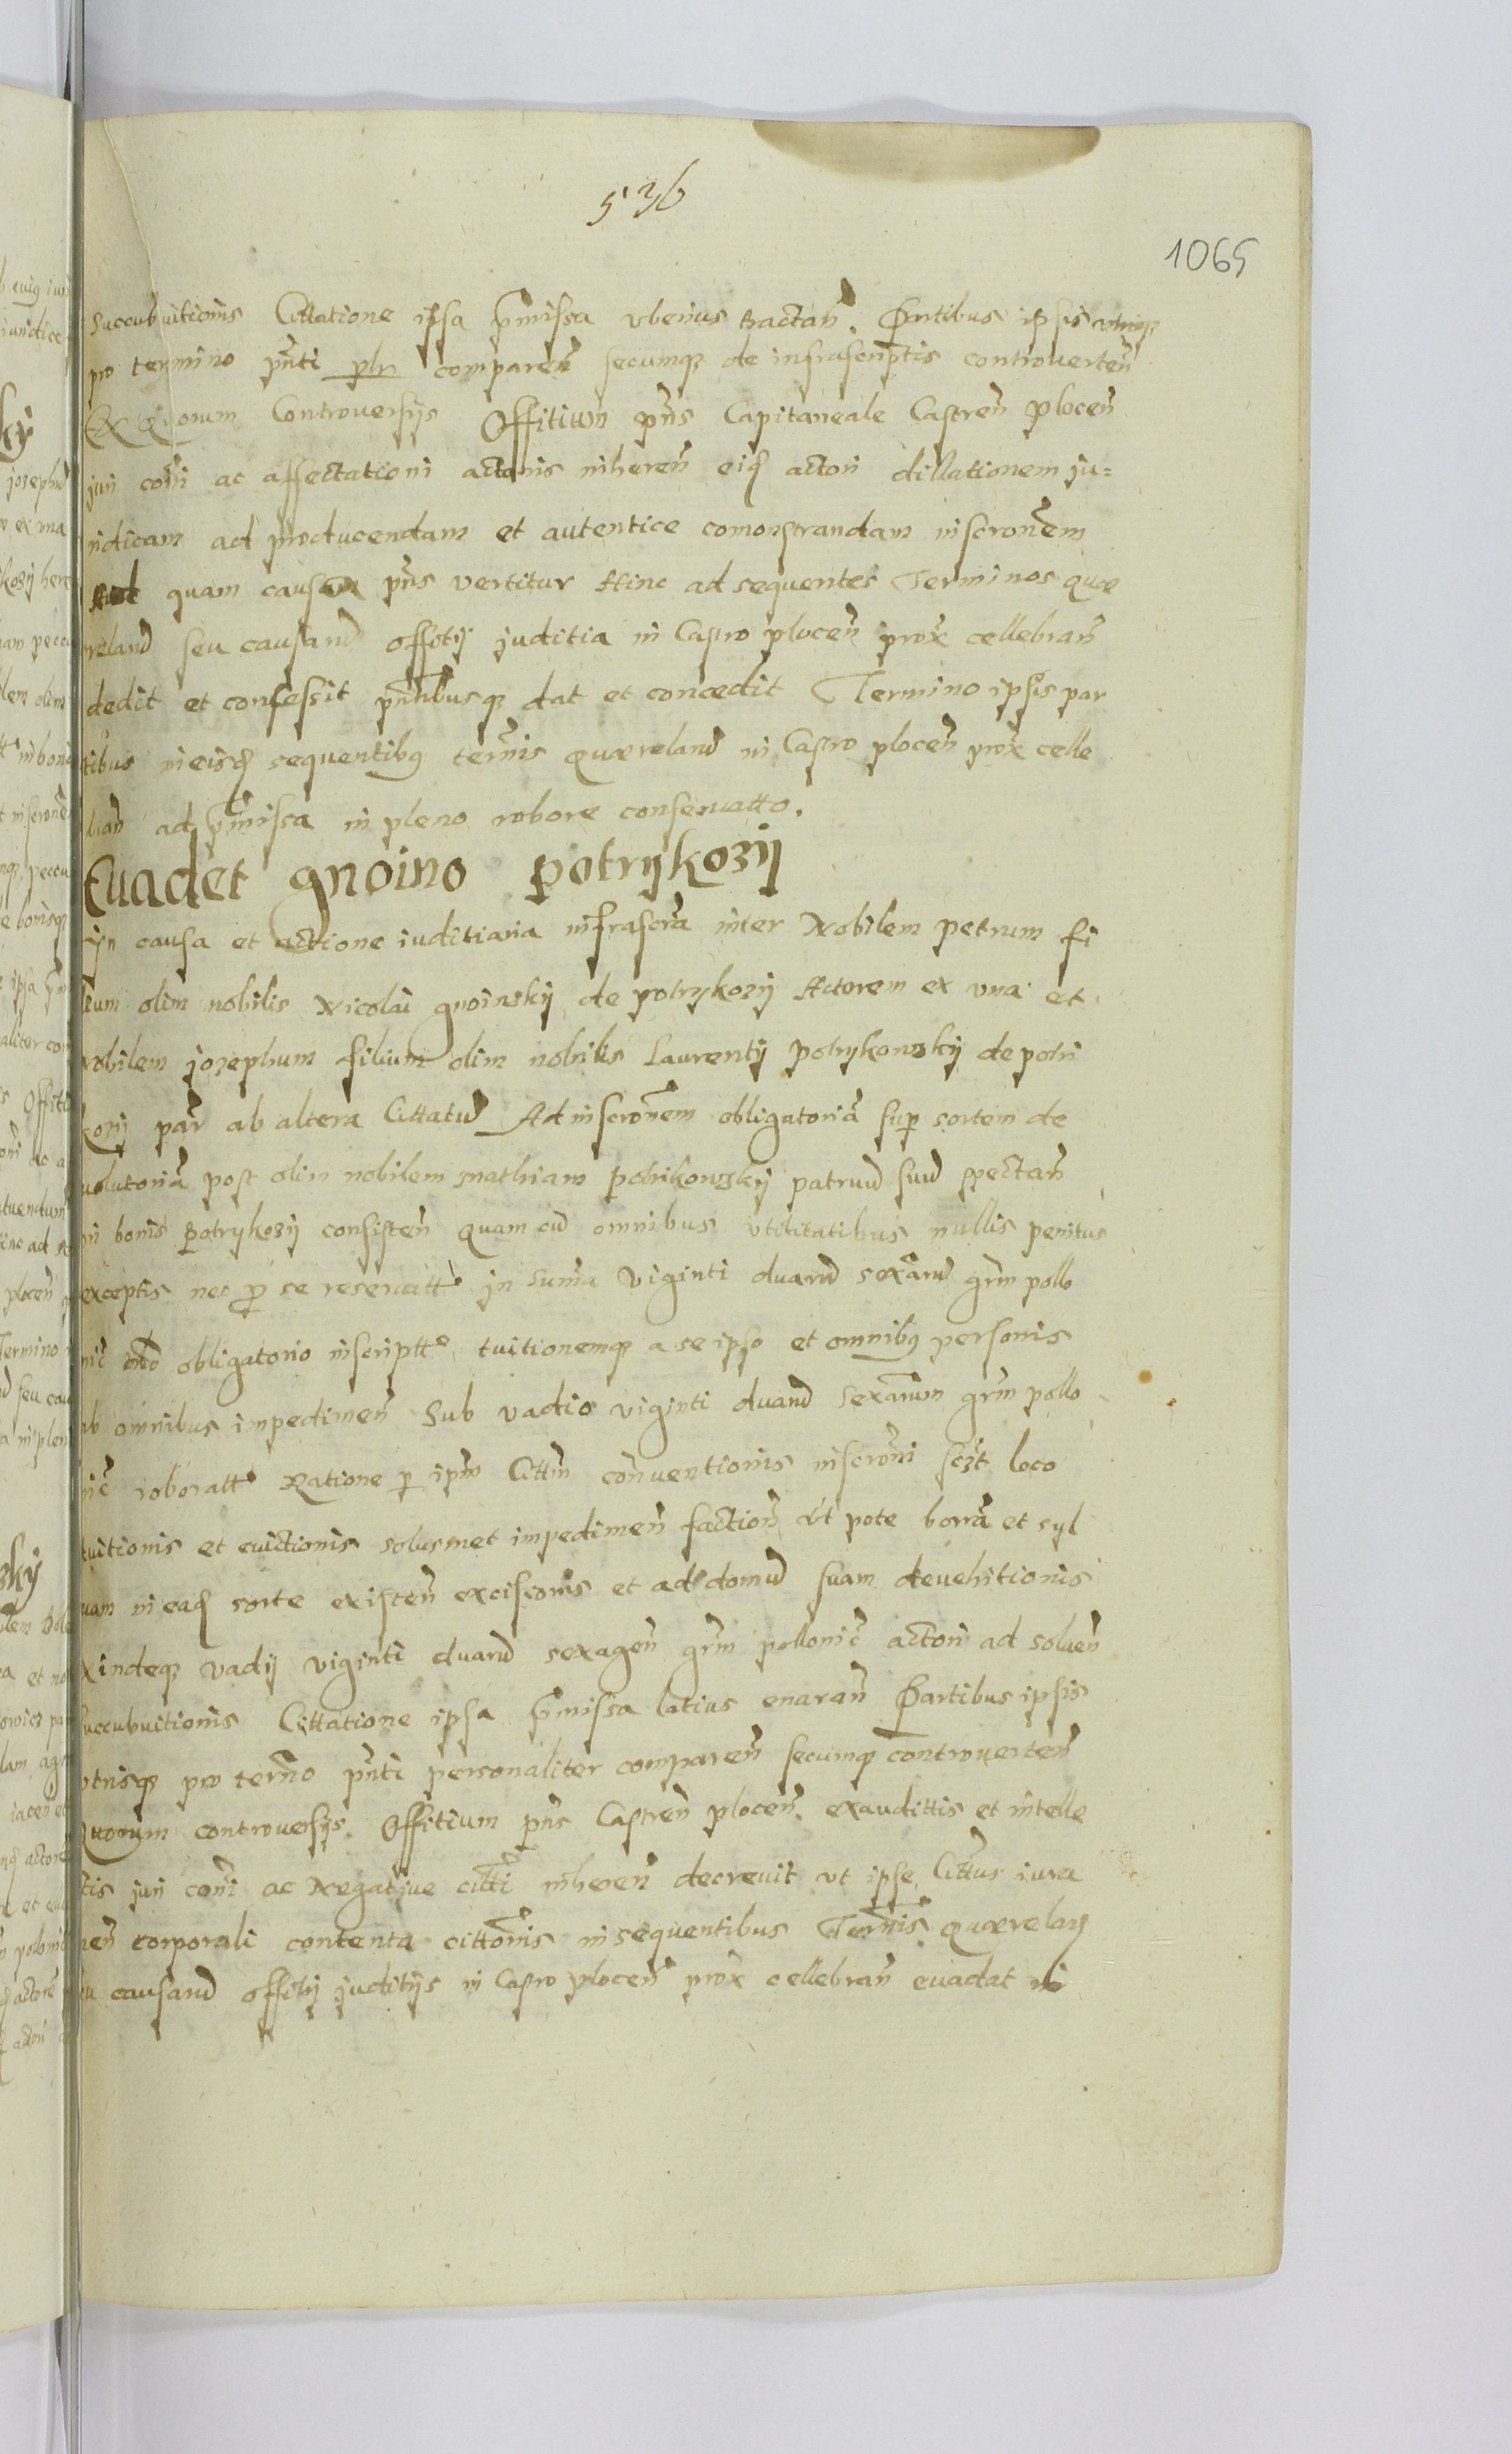 536
1065
Succubuitionis Cittatione ipsa p̄missa vberius tractan̄. Partibus ipsis utrisq̷
pro termino pn̄ti plr comparen̄ secumq̷ de infrascriptis controverten̄
Ex Quorum Controversijs Offitium pn̄s Capitaneale Castren̄ plocen̄
juri com̄i ac affectationi actoris inheren̄ eid̷ actori dillationem ju=
ridicam ad producendam et autentice comonstrandam inscron̄em
quam causa pn̄s vertitur Hinc ad sequentes Terminos quæ
reland̄ seu causand̄ offitij juditia in Castro plocen̄ prox̄ cellebran̄
dedit et consessit pn̄tibusq̷ dat et concedit Termino ipsis par
tibus in eisd̷ sequentibq̷ term̄is quæreland̄ in Castro plocen̄ prox̄ celle
bran̄ ad p̄missa in pleno robore conservatto.
Evadet gnoino potrykozij
Jn causa et actione iuditiaria infrascrā inter Nobilem petrum fi
lium olim nobilis Nicolai gnoinskij de potrykozij Actorem ex una et
Nobilem jozephum filium olim nobilis Laurentij potrykowskij de potri
kozij par̄ ab altera Cittatū Ad inscron̄em obligatoriā sup̱ sortem de
volutoriā post olim nobilem mathiam potrikowskij patruū suū spectan̄
in bonis potrykozij consisten̄ quam cū omnibus utilitatibus nullis penitus
exceptis nec p̱ se reservatt̄ jn sum̄a viginti duarū sexārū gr̄m pollo
nic̄ mō obligatorio inscriptt̄ tuitionemq̷ a se ipso et omnibq̷ personis
ab omnibus impedimen̄ sub vadio viginti duarū sexārum gr̄m pollo
nic̄ roboratt̄ Ratione p̱ ipm̄ Cittm̄ con̄ventionis inscron̄i scz̄t loco
tuitionis et evictionis solusmet impedimen̄ faction̄ Ut pote borrā et syl
uam in ead̷ sorte existen̄ exciscōnis et ad domū suam devehitionis
exindeq̷ vadij viginti duarū sexagen̄ gr̄m pollonic̄ actori ad solven̄
succubuitionis Cittatione ipsa p̄missa latius enaran̄ Partibus ipsis
utrisq̷ pro term̄o pn̄ti personaliter comparen̄ secumq̷ controverten̄
Quorum controversijs Offitium pn̄s Castren̄ plocen̄ exaudittis et intelle
ctis juri com̄i ac Negative citti inheren̄ decrevit ut ipse Cittus iura
men̄ corporali contenta cittōnis in sequentibus Term̄is quærelan̄
seu causand̄ offitij juditijs in Castro plocen̄ prox̄ cellebran̄ evadat